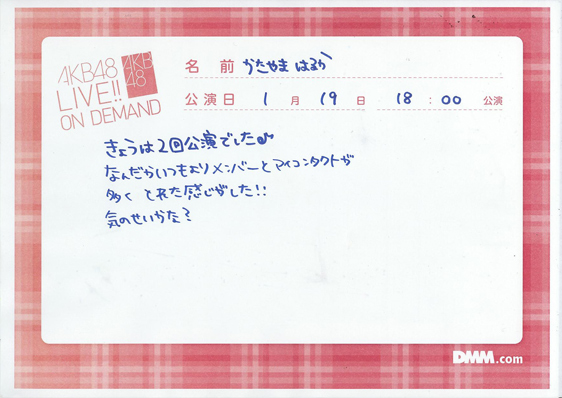 AKB48
LIVE!!
ON DEMAND
AKB
48
名前 かたやま はるか
公演日 1月19日 18:00 公演
きょうは2回公演でした♪
なんだかいつもよりメンバーとアイコンタクトが
多く とれた感じがした!!
気のせいかな?
DMM.com